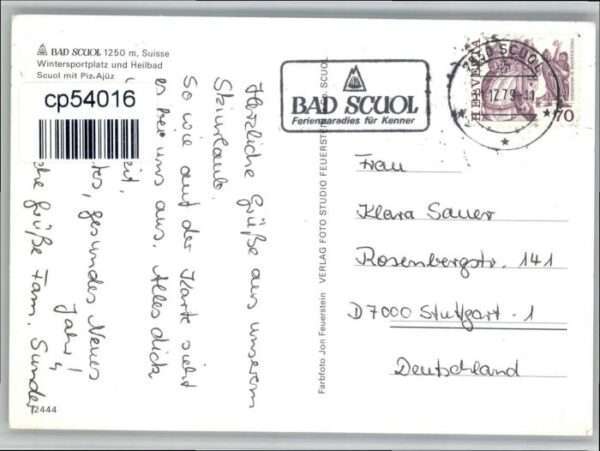 BAD SCUOL 1250 m, Suisse
Wintersportplatz und Heilbad
Scuol mit Piz. Ajüz
cp54016
Herzliche Grüße aus unserem
Skiurlaub.
So wie auf der Karte sieht
es bei uns aus. Alles dick
gesundes Neues
Jahr!
Grüße Fam. Sunder
2444
Farbfoto Jon Feuerstein VERLAG FOTO STUDIO FEUERSTEIN, SCUOL
BAD SCUOL
Ferienparadies für Kenner
SCUOL
12.79
HELVETIA
70
Frau
Klara Sauer
Rosenbergstr. 141
D7000 Stuttgart - 1
Deutschland